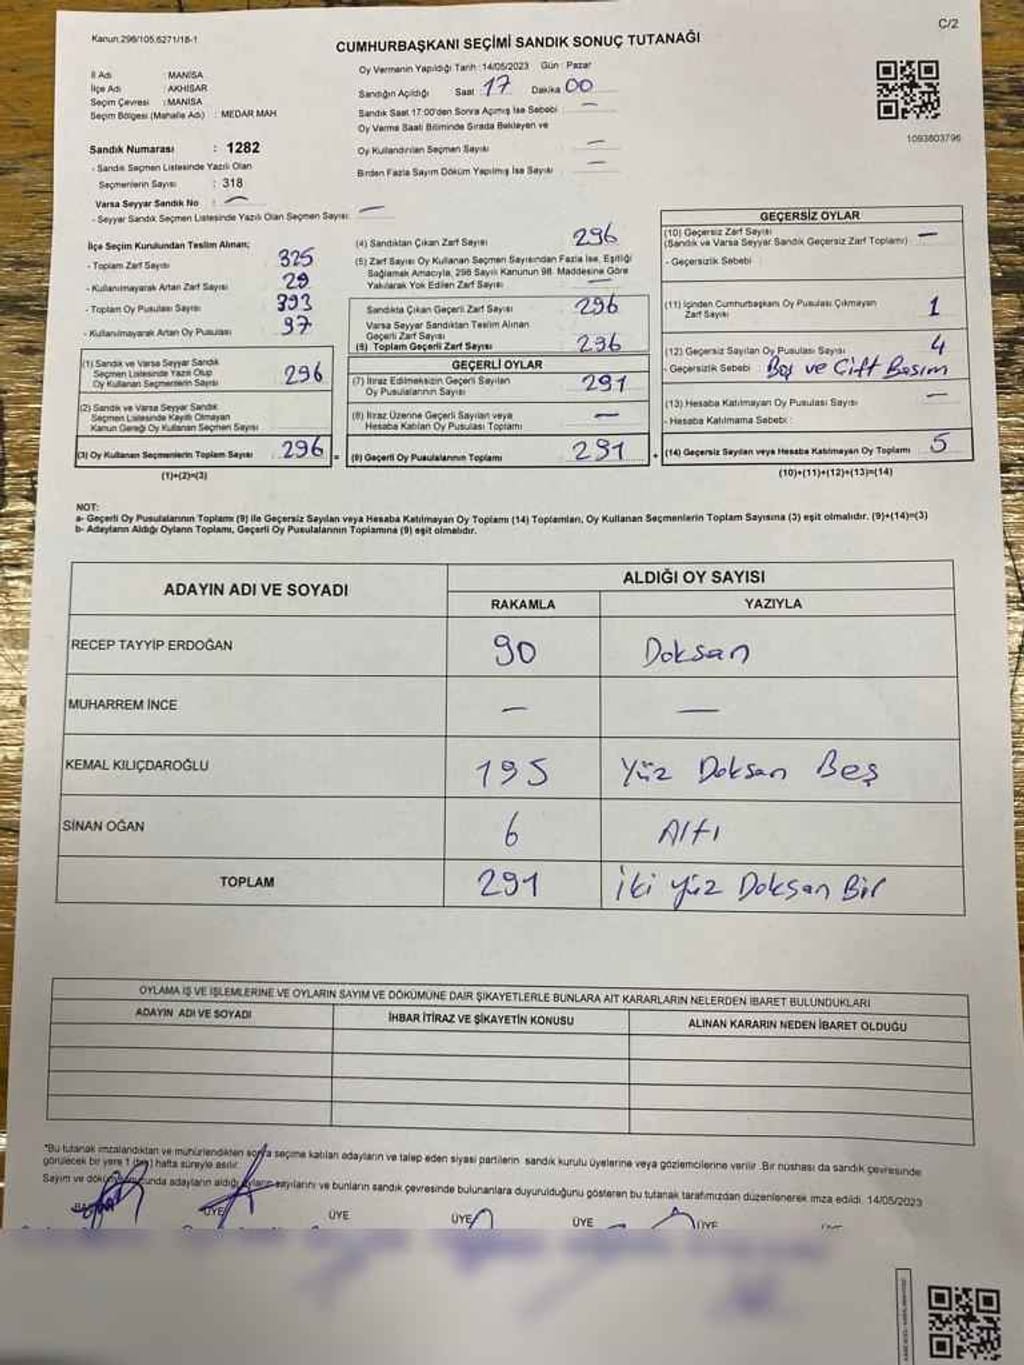 C/2
Kanun.298/105,6271/18-1
CUMHURBAŞKANI SEÇİMİ SANDIK SONUÇ TUTANAĞI
İl Adı : MANİSA
İlçe Adı : AKHİSAR
Seçim Çevresi : MANİSA
Seçim Bölgesi (Mahalle Adı) : MEDAR MAH
Sandık Numarası : 1282
- Sandık Seçmen Listesinde Yazılı Olan
Seçmenlerin Sayısı : 318
Varsa Seyyar Sandık No : —
- Seyyar Sandık Seçmen Listesinde Yazılı Olan Seçmen Sayısı: —
Oy Vermenin Yapıldığı Tarih : 14/05/2023 Gün : Pazar
Sandığın Açıldığı Saat : 17 Dakika 00
Sandık Saat 17:00'den Sonra Açılmış İse Sebebi : —
Oy Verme Saati Bitiminde Sırada Bekleyen ve
Oy Kullandırılan Seçmen Sayısı —
Birden Fazla Sayım Döküm Yapılmış İse Sayısı —
1093803796
İlçe Seçim Kurulundan Teslim Alınan;
- Toplam Zarf Sayısı 325
- Kullanılmayarak Artan Zarf Sayısı 29
- Toplam Oy Pusulası Sayısı 393
- Kullanılmayarak Artan Oy Pusulası 97
(1) Sandık ve Varsa Seyyar Sandık
Seçmen Listesinde Yazılı Olup
Oy Kullanan Seçmenlerin Sayısı 296
(2) Sandık ve Varsa Seyyar Sandık
Seçmen Listesinde Kayıtlı Olmayan
Kanun Gereği Oy Kullanan Seçmen Sayısı
(3) Oy Kullanan Seçmenlerin Toplam Sayısı 296 =
(1)+(2)=(3)
(4) Sandıktan Çıkan Zarf Sayısı 296
(5) Zarf Sayısı Oy Kullanan Seçmen Sayısından Fazla İse, Eşitliği
Sağlamak Amacıyla, 298 Sayılı Kanunun 98. Maddesine Göre
Yakılarak Yok Edilen Zarf Sayısı —
Sandıkta Çıkan Geçerli Zarf Sayısı 296
Varsa Seyyar Sandıktan Teslim Alınan
Geçerli Zarf Sayısı
(6) Toplam Geçerli Zarf Sayısı 296
GEÇERLİ OYLAR
(7) İtiraz Edilmeksizin Geçerli Sayılan
Oy Pusulasının Sayısı 291
(8) İtiraz Üzerine Geçerli Sayılan veya
Hesaba Katılan Oy Pusulası Toplamı —
(9) Geçerli Oy Pusulalarının Toplamı 291 +
GEÇERSİZ OYLAR
(10) Geçersiz Zarf Sayısı —
(Sandık ve Varsa Seyyar Sandık Geçersiz Zarf Toplamı)
- Geçersizlik Sebebi :
(11) İçinden Cumhurbaşkanı Oy Pusulası Çıkmayan
Zarf Sayısı 1
(12) Geçersiz Sayılan Oy Pusulası Sayısı 4
- Geçersizlik Sebebi : Boş ve Çift Basım
(13) Hesaba Katılmayan Oy Pusulası Sayısı —
- Hesaba Katılmama Sebebi :
(14) Geçersiz Sayılan veya Hesaba Katılmayan Oy Toplamı 5
(10)+(11)+(12)+(13)=(14)
NOT:
a- Geçerli Oy Pusulalarının Toplamı (9) ile Geçersiz Sayılan veya Hesaba Katılmayan Oy Toplamı (14) Toplamları, Oy Kullanan Seçmenlerin Toplam Sayısına (3) eşit olmalıdır. (9)+(14)=(3)
b- Adayların Aldığı Oyların Toplamı, Geçerli Oy Pusulalarının Toplamına (9) eşit olmalıdır.
ADAYIN ADI VE SOYADI ALDIĞI OY SAYISI
RAKAMLA YAZIYLA
RECEP TAYYİP ERDOĞAN 90 Doksan
MUHARREM İNCE — —
KEMAL KILIÇDAROĞLU 195 Yüz Doksan Beş
SİNAN OĞAN 6 Altı
TOPLAM 291 İki Yüz Doksan Bir
OYLAMA İŞ VE İŞLEMLERİNE VE OYLARIN SAYIM VE DÖKÜMÜNE DAİR ŞİKAYETLERLE BUNLARA AİT KARARLARIN NELERDEN İBARET BULUNDUKLARI
ADAYIN ADI VE SOYADI İHBAR İTİRAZ VE ŞİKAYETİN KONUSU ALINAN KARARIN NEDEN İBARET OLDUĞU
*Bu tutanak imzalandıktan ve mühürlendikten sonra seçime katılan adayların ve talep eden siyasi partilerin sandık kurulu üyelerine veya gözlemcilerine verilir .Bir nüshası da sandık çevresinde
görülecek bir yere 1 (bir) hafta süreyle asılır.
Sayım ve dökümünde adayların aldığı oyların sayılarını ve bunların sandık çevresinde bulunanlara duyurulduğunu gösteren bu tutanak tarafımızdan düzenlenerek imza edildi. 14/05/2023
ÜYE ÜYE ÜYE ÜYE ÜYE